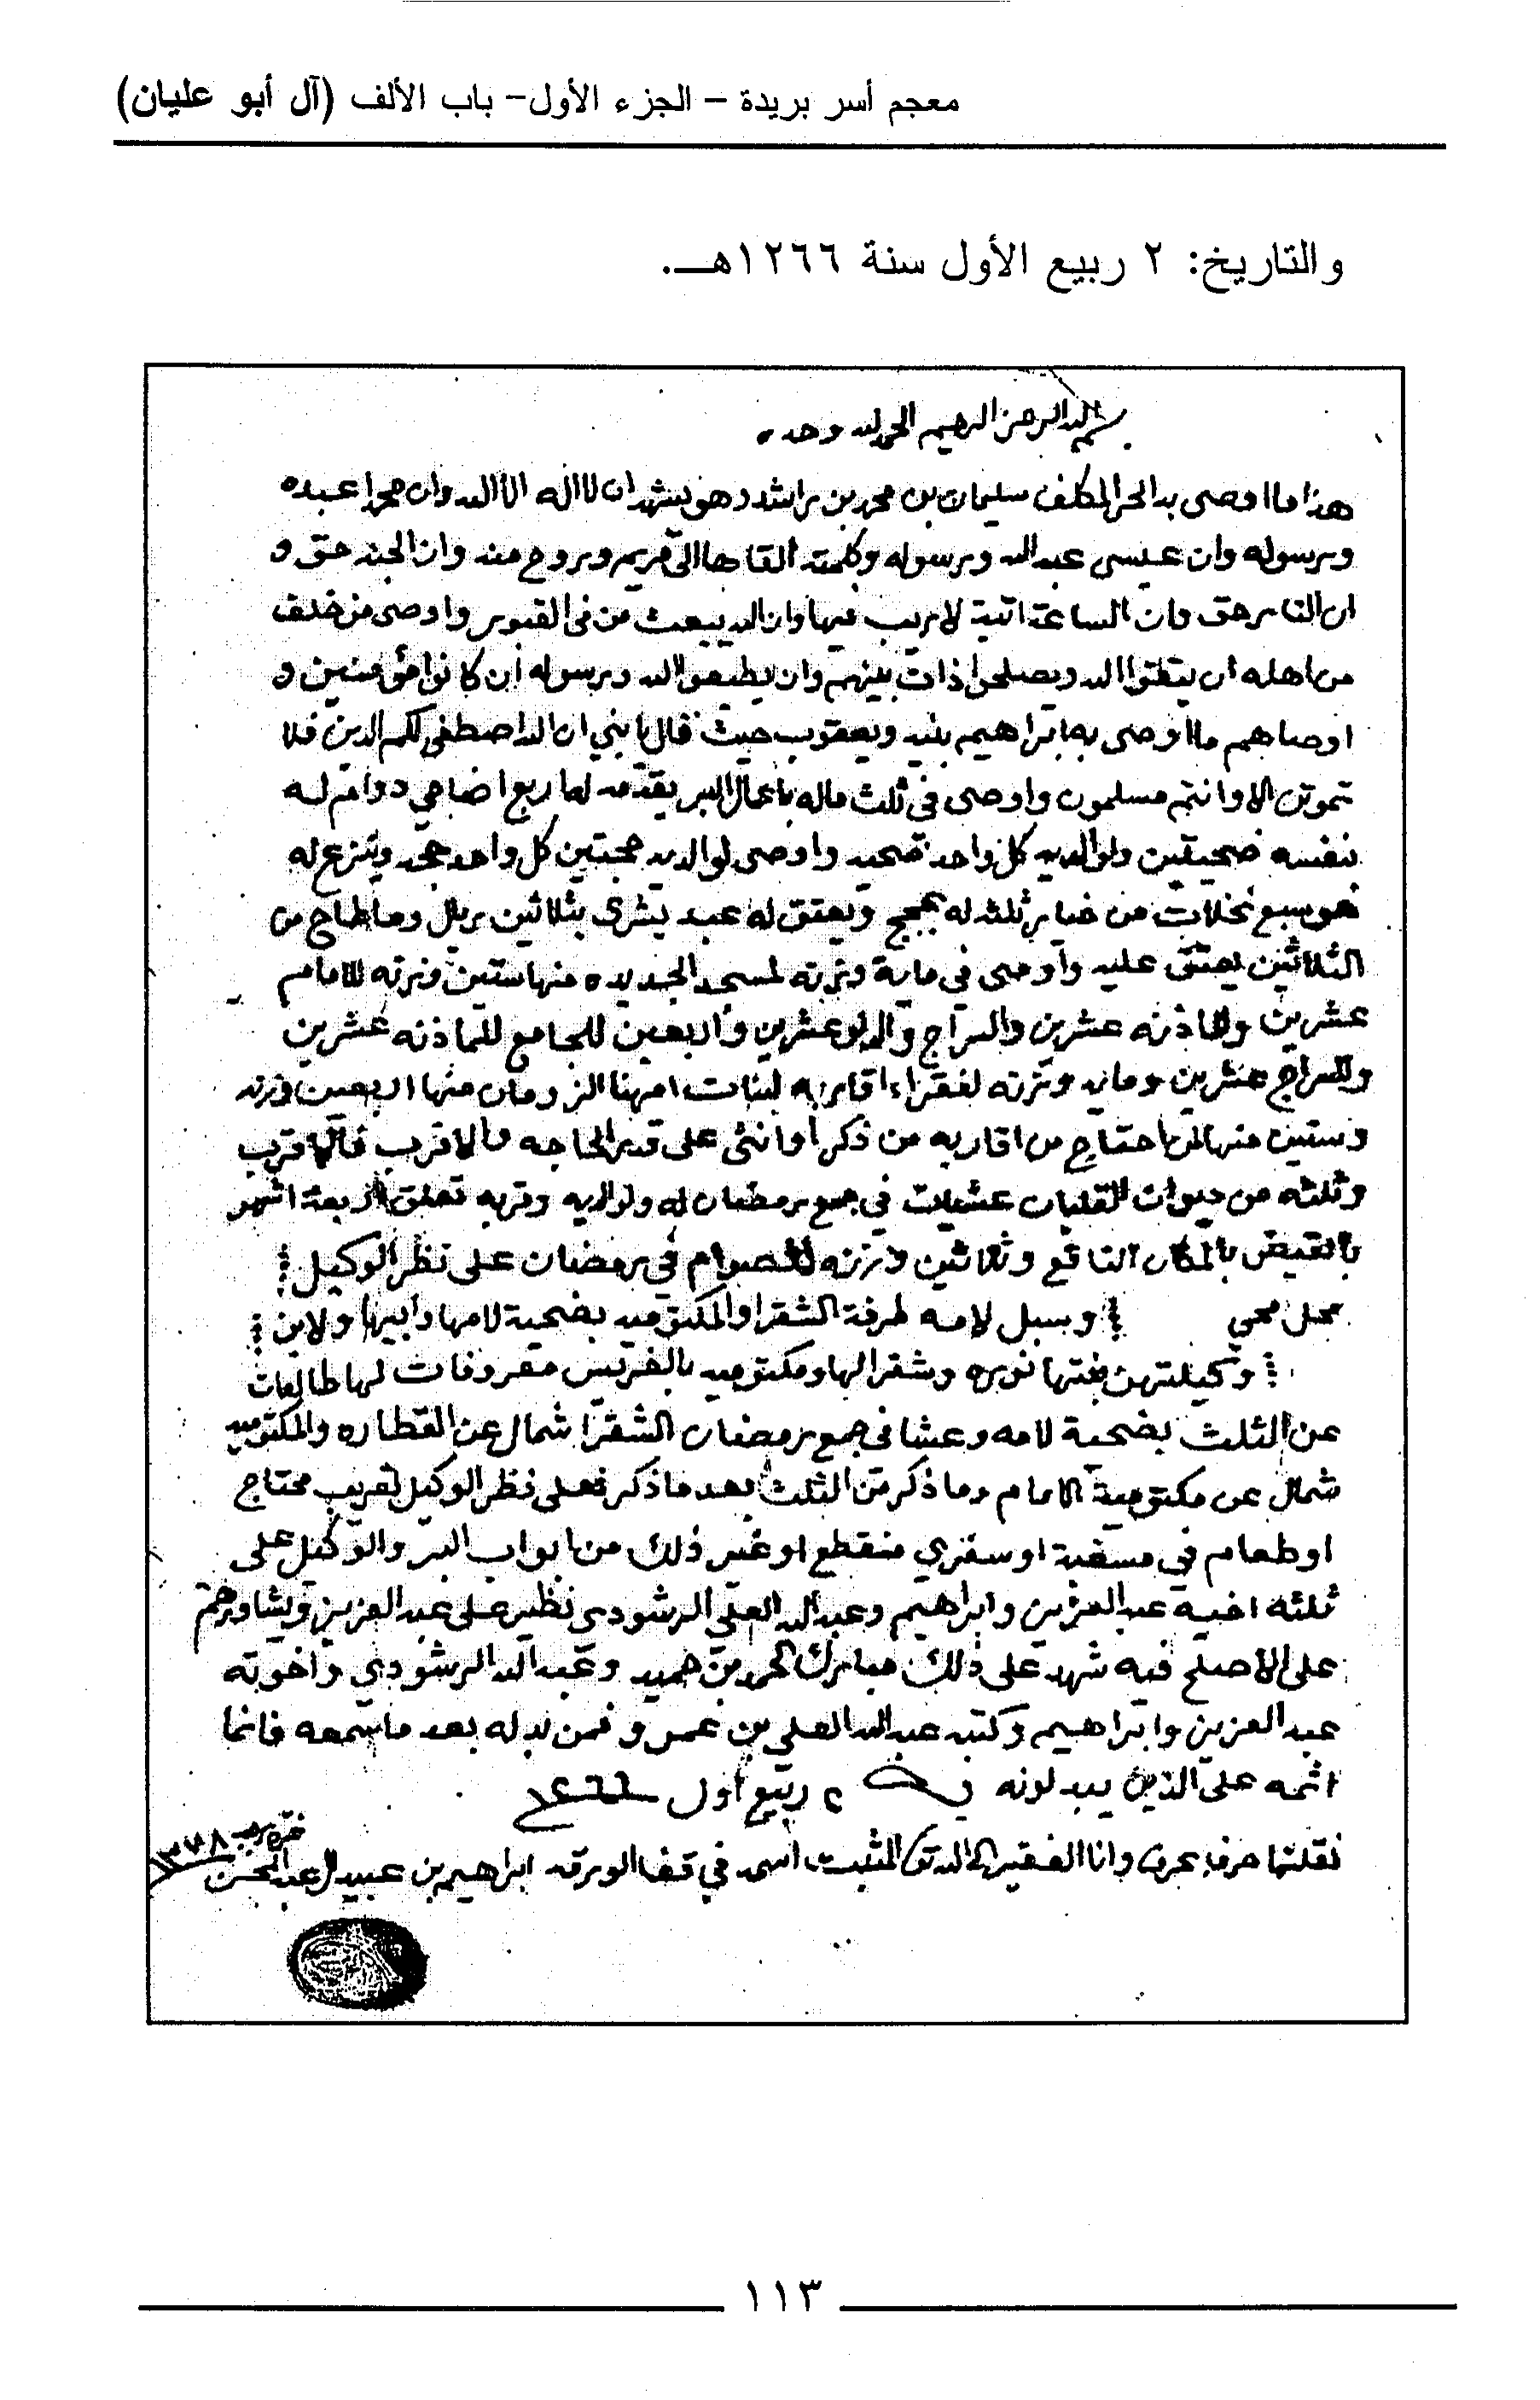 معجم أسر بريدة – الجزء الأول– باب الألف (آل أبو عليان)
والتاريخ: ٢ ربيع الأول سنة ١٢٦٦هـ.
بسم الله الرحمن الرحيم الحمد لله وحده
هذا ما اوصى به الحر المكلف سليمان بن محمد بن راشد وهو يشهد ان لا اله الا الله وان محمدا عبده
ورسوله وان عيسى عبد الله ورسوله وكلمته القاها الى مريم وروح منه وان الجنه حق و
ان النار حق وان الساعة اتية لا ريب فيها وان الله يبعث من في القبور واوصى من خلف
من اهله ان يتقوا الله ويصلحوا ذات بينهم وان يطيعوا الله ورسوله ان كانوا مؤمنين و
اوصاهم ما اوصى به ابراهيم بنيه ويعقوب حيث قال يا بني ان الله اصطفى لكم الدين فلا
تموتن الا وانتم مسلمون واوصى في ثلث ماله باعمال البر يقدمه اربع اضاحي دوام له
لنفسه ضحيتين ولوالديه كل واحد ضحيه واوصى لوالديه حجتين كل واحد حجه وينزع له
هو سبع نخلات من خيار ثلثه له بحجج ويعتق له عبد يشرى بثلاثين ريال وما طاح من
الثلاثين يعتق عليه واوصى في ماية وزنه لمسجد الجديده منها ستين وزنه للامام
عشرين وللماذنه عشرين والسراج والدلو عشرين واربعين للجامع للماذنه عشرين
وللسراج عشرين ومايه وزنه لفقراء اقاربه لبنات امهنا الزومان منها اربعين وزنه
وستين منها لمن احتاج من اقاربه من ذكر او انثى على قدر الحاجه الاقرب فالاقرب
وثلثه من حيوان القلبان عشيات في جمع رمضان له ولوالديه وقربه تعلق اربعة اشهر
بالقيض بالمكان النافع وثلاثين وزنه للصوام في رمضان على نظر الوكيل
محل محي وسبل لامه طرفة الشقرا والمكتوميه بضحية لامها وابيها ولابن
وكيلتهن بنتها نويره وشقرا لها ومكتوميه مفروقات لها طالعات
عن الثلث بضحية لامه وعشا في جمع رمضان الشقرا شمال عن القطاره والمكتوميه
شمال عن مكتومية الامام وما ذكر من الثلث بعد ما ذكر فعلى نظر الوكيل لقريب محتاج
او طعام في مسغبة او سفري منقطع او غير ذلك من ابواب البر والوكيل على
ثلثه اخيه عبد العزيز وابراهيم وعبد الله العلي الرشودي نظير على عبد العزيز ويشاورهم
على الاصلح فيه شهد على ذلك مبارك الحمد بن حميد وعبد الله الرشودي واخوته
عبد العزيز وابراهيم وكتبه عبد الله العلي بن عمرو فمن بدله بعد ما سمعه فانما
اثمه على الذين يبدلونه ٢ ربيع اول ١٢٦٦
نقلتها حرفا بحرف وانا الفقير الى الله المثبت اسمه في قفا الورقه ابراهيم بن عبيد ال عبد المحسن
١٣٧٨
١١٣